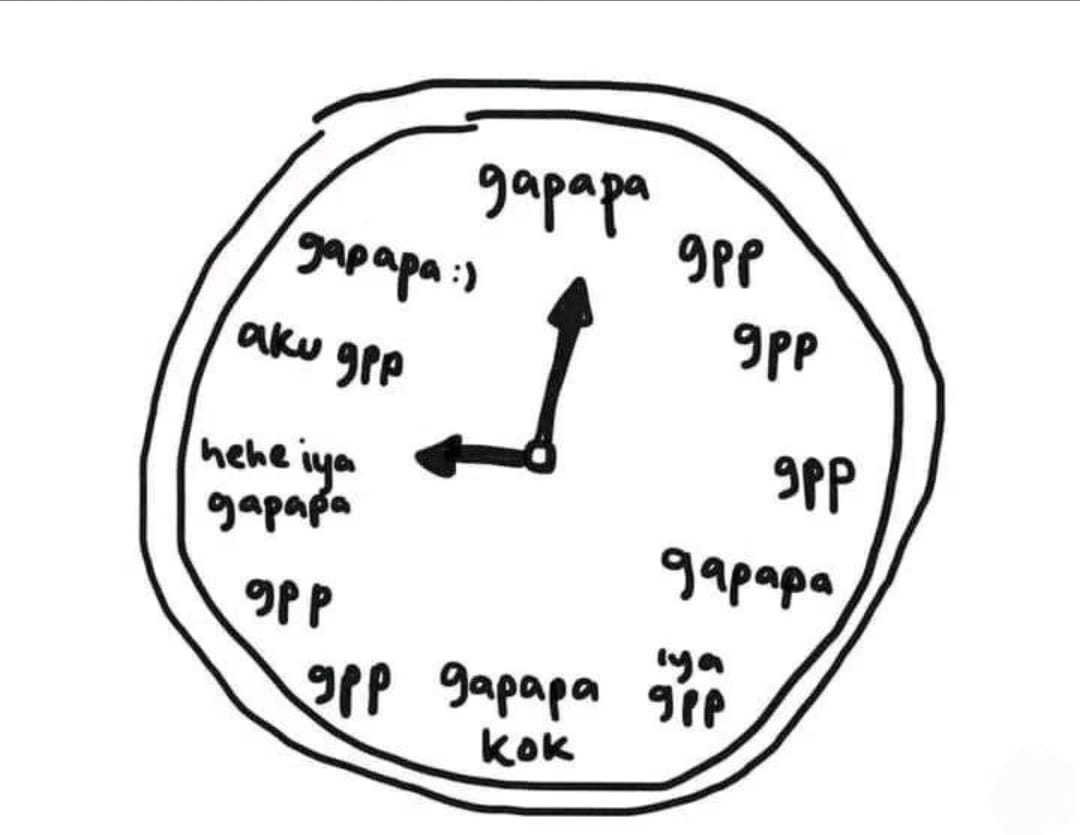 gapapa
gpp
gpp
gpp
gapapa
iya
gpp
gapapa
kok
gpp
gpp
hehe iya
gapapa
aku gpp
gapapa :)